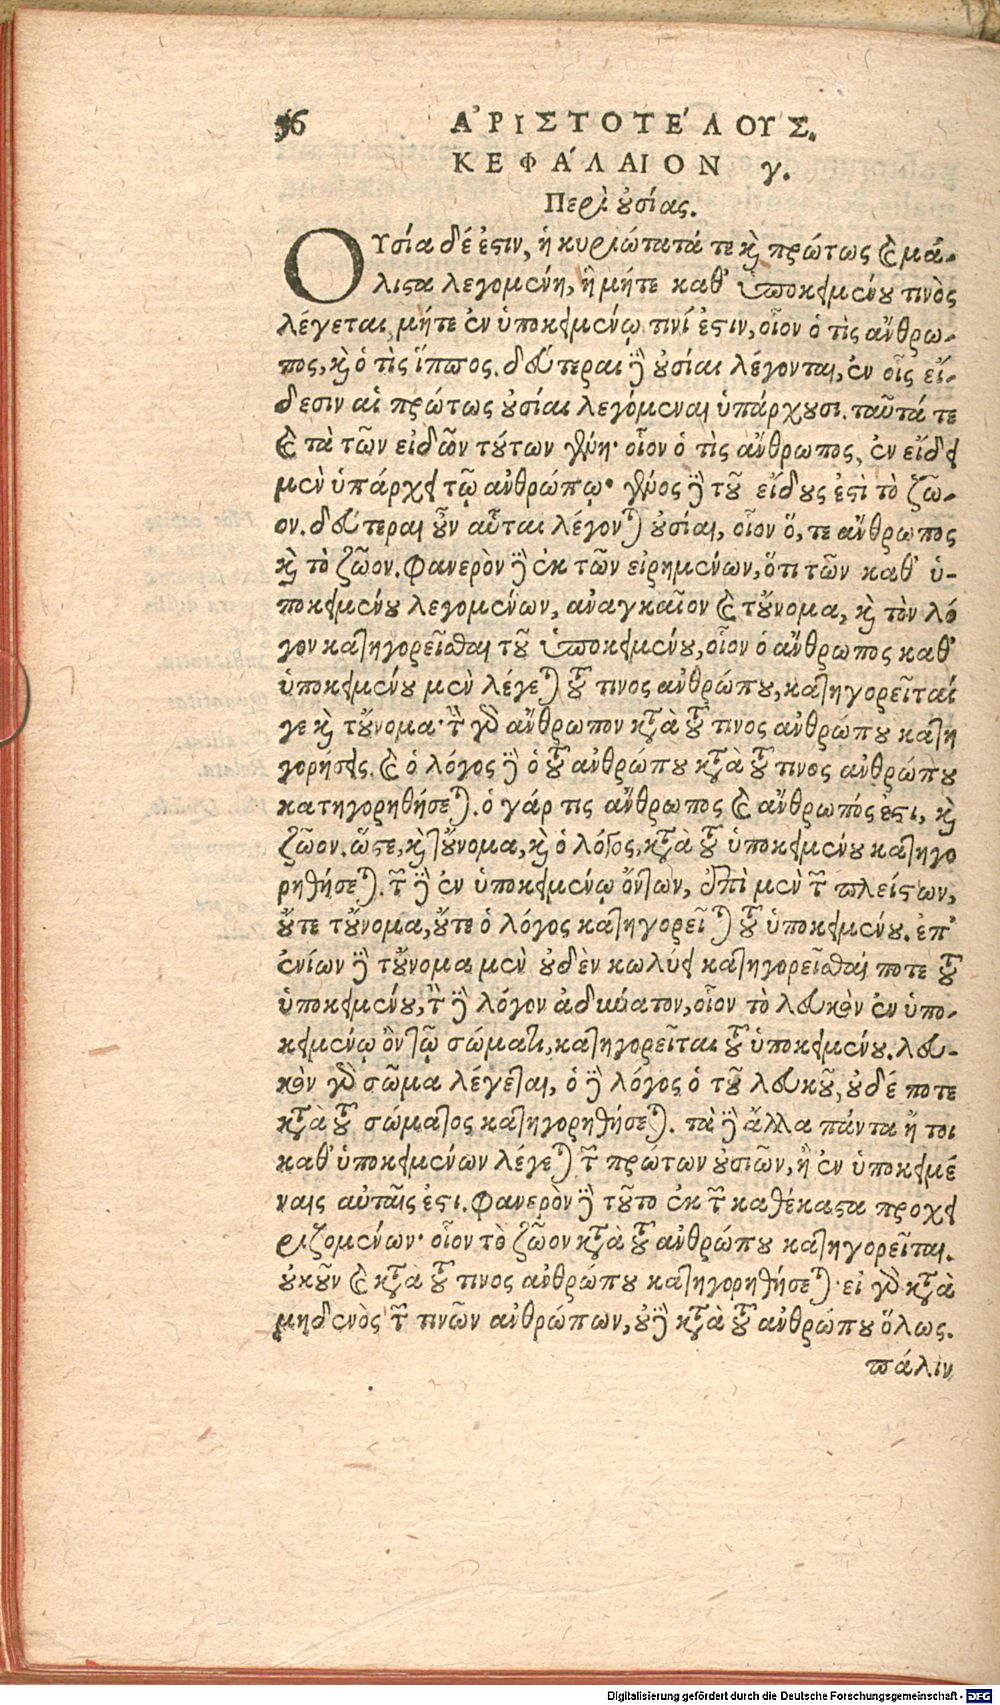 56 ἈΡΙΣΤΟΤΈΛΟΥΣ.
ΚΕΦΆΛΑΙΟΝ γ.
Περὶ οὐσίας.
ΟΥσία δέ ἐστιν, ἡ κυριώτατά τε καὶ πρώτως καὶ μά-
λιστα λεγομένη, ἣ μήτε καθ' ὑποκειμένου τινὸς
λέγεται, μήτε ἐν ὑποκειμένῳ τινί ἐστιν, οἷον ὁ τὶς ἄνθρω-
πος, καὶ ὁ τὶς ἵππος. δεύτεραι δὲ οὐσίαι λέγονται, ἐν οἷς εἴ-
δεσιν αἱ πρώτως οὐσίαι λεγόμεναι ὑπάρχουσι. ταῦτά τε
καὶ τὰ τῶν εἰδῶν τούτων γένη· οἷον ὁ τὶς ἄνθρωπος, ἐν εἴδει
μὲν ὑπάρχει τῷ ἀνθρώπῳ· γένος δὲ τοῦ εἴδους ἐστὶ τὸ ζῶ-
ον. δεύτεραι οὖν αὗται λέγονται οὐσίαι, οἷον ὅ, τε ἄνθρωπος
καὶ τὸ ζῶον. Φανερὸν δὲ ἐκ τῶν εἰρημένων, ὅτι τῶν καθ' ὑ-
ποκειμένου λεγομένων, ἀναγκαῖον καὶ τοὔνομα, καὶ τὸν λό
γον κατηγορεῖσθαι τοῦ ὑποκειμένου, οἷον ὁ ἄνθρωπος καθ'
ὑποκειμένου μὲν λέγεται τοῦ τινος ἀνθρώπου, κατηγορεῖταί
γε καὶ τοὔνομα· τὸν γὰρ ἄνθρωπον κατὰ τοῦ τινος ἀνθρώπου κατη
γορήσεις. καὶ ὁ λόγος δὲ ὁ τοῦ ἀνθρώπου κατὰ τοῦ τινος ἀνθρώπου
κατηγορηθήσεται. ὁ γάρ τις ἄνθρωπος καὶ ἄνθρωπός ἐστι, καὶ
ζῶον. ὥστε, καὶ τοὔνομα, καὶ ὁ λόγος, κατὰ τοῦ ὑποκειμένου κατηγο
ρηθήσεται. τῶν δὲ ἐν ὑποκειμένῳ ὄντων, ἐπὶ μὲν τῶν πλείστων,
οὔτε τοὔνομα, οὔτε ὁ λόγος κατηγορεῖται τοῦ ὑποκειμένου. ἐπ'
ἐνίων δὲ τοὔνομα μὲν οὐδὲν κωλύει κατηγορεῖσθαί ποτε τοῦ
ὑποκειμένου, τὸν δὲ λόγον ἀδύνατον, οἷον τὸ λευκὸν ἐν ὑπο-
κειμένῳ ὂν τῷ σώματι, κατηγορεῖται τοῦ ὑποκειμένου. λευ-
κὸν γὰρ σῶμα λέγεται, ὁ δὲ λόγος ὁ τοῦ λευκοῦ, οὐδέ ποτε
κατὰ τοῦ σώματος κατηγορηθήσεται. τὰ δὲ ἄλλα πάντα ἤ τοι
καθ' ὑποκειμένων λέγεται τῶν πρώτων οὐσιῶν, ἢ ἐν ὑποκειμέ
ναις αὐταῖς ἐστι. Φανερὸν δὲ τοῦτο ἐκ τῶν καθέκαστα προχει
ριζομένων· οἷον τὸ ζῶον κατὰ τοῦ ἀνθρώπου κατηγορεῖται.
οὐκοῦν καὶ κατὰ τοῦ τινος ἀνθρώπου κατηγορηθήσεται· εἰ γὰρ κατὰ
μηδενὸς τῶν τινῶν ἀνθρώπων, οὐδὲ κατὰ τοῦ ἀνθρώπου ὅλως.
πάλιν
Digitalisierung gefördert durch die Deutsche Forschungsgemeinschaft - DFG